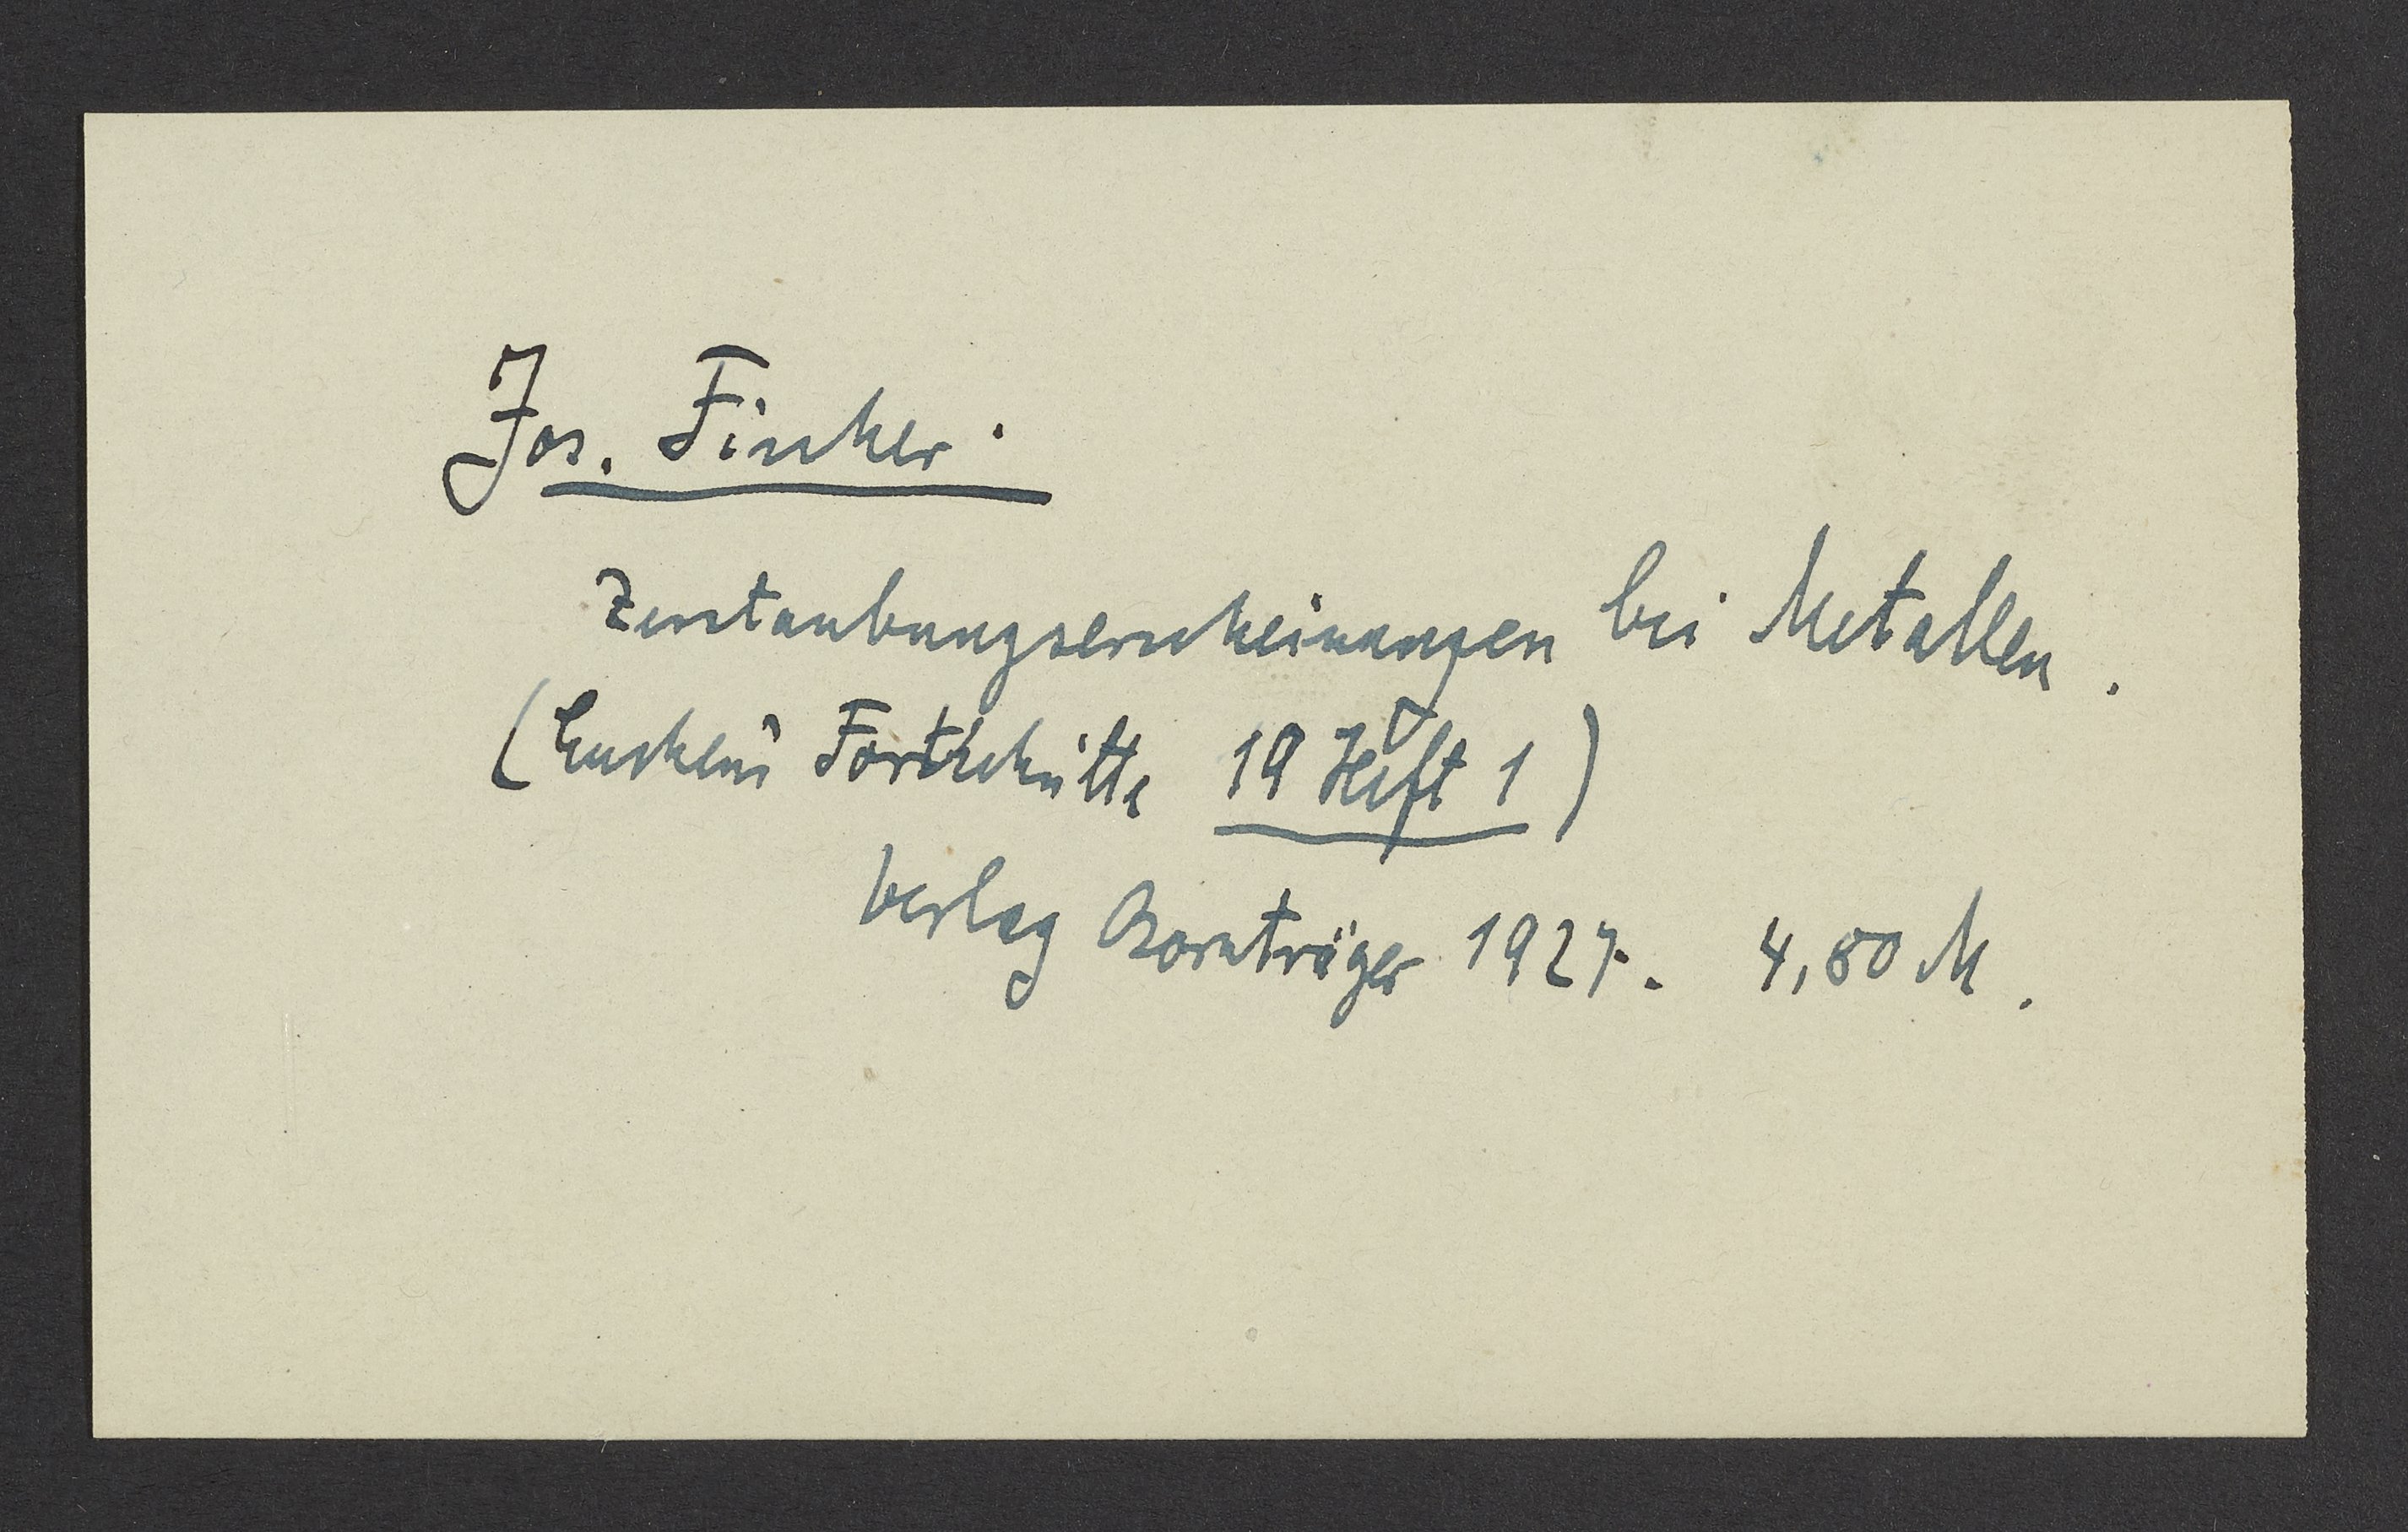 Jos. Fischer.
Zerstäubungserscheinungen bei Metallen.
(Euckens Fortschritte 19 Heft 1)
Verlag Bornträger 1927. 4,80 M.